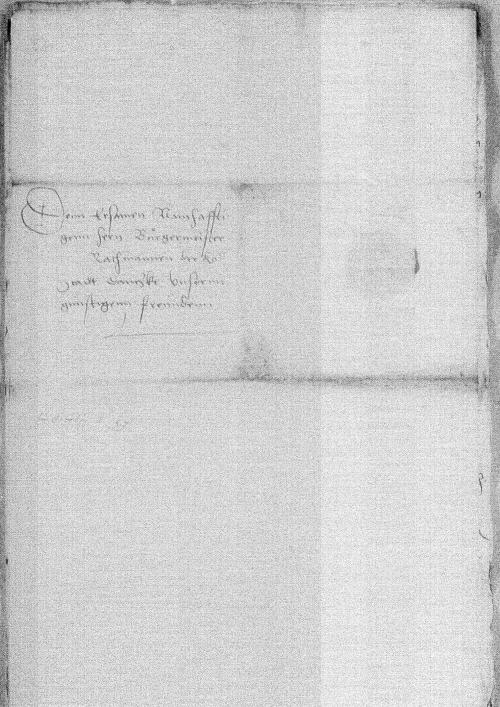 Denn Ersamen Namhaffti
genn hern Burgermeister
Rathmannen der Ko
Stadt Dantzke Unsernn
gunstigenn freundenn